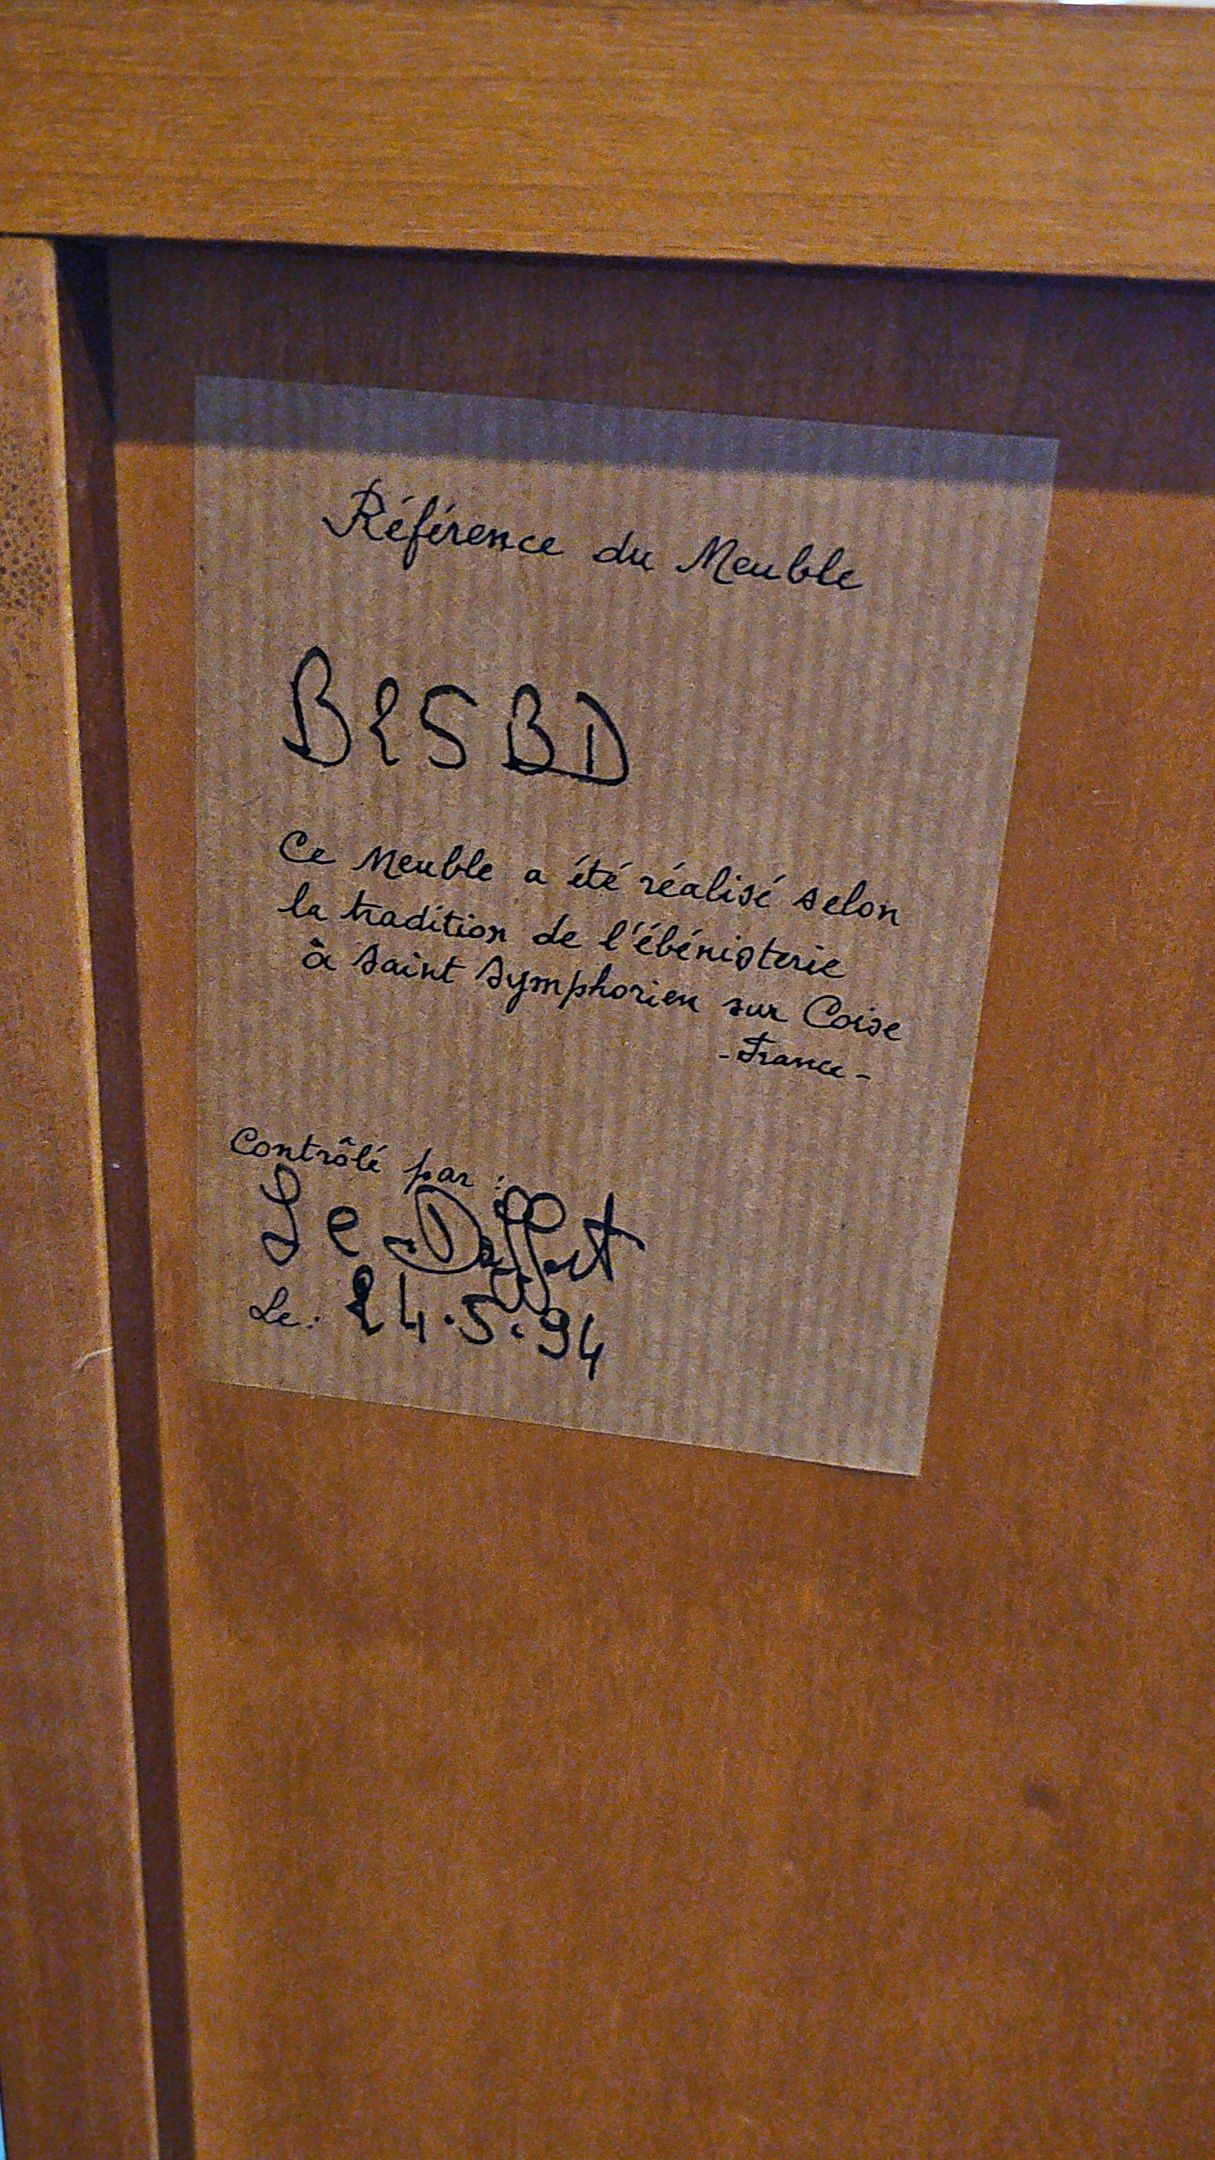 Référence du Meuble
B25BD
Ce Meuble a été réalisé selon
la tradition de l'ébénisterie
à Saint Symphorien sur Coise
- France -
Contrôlé par :
Le
Le: 24.5.94